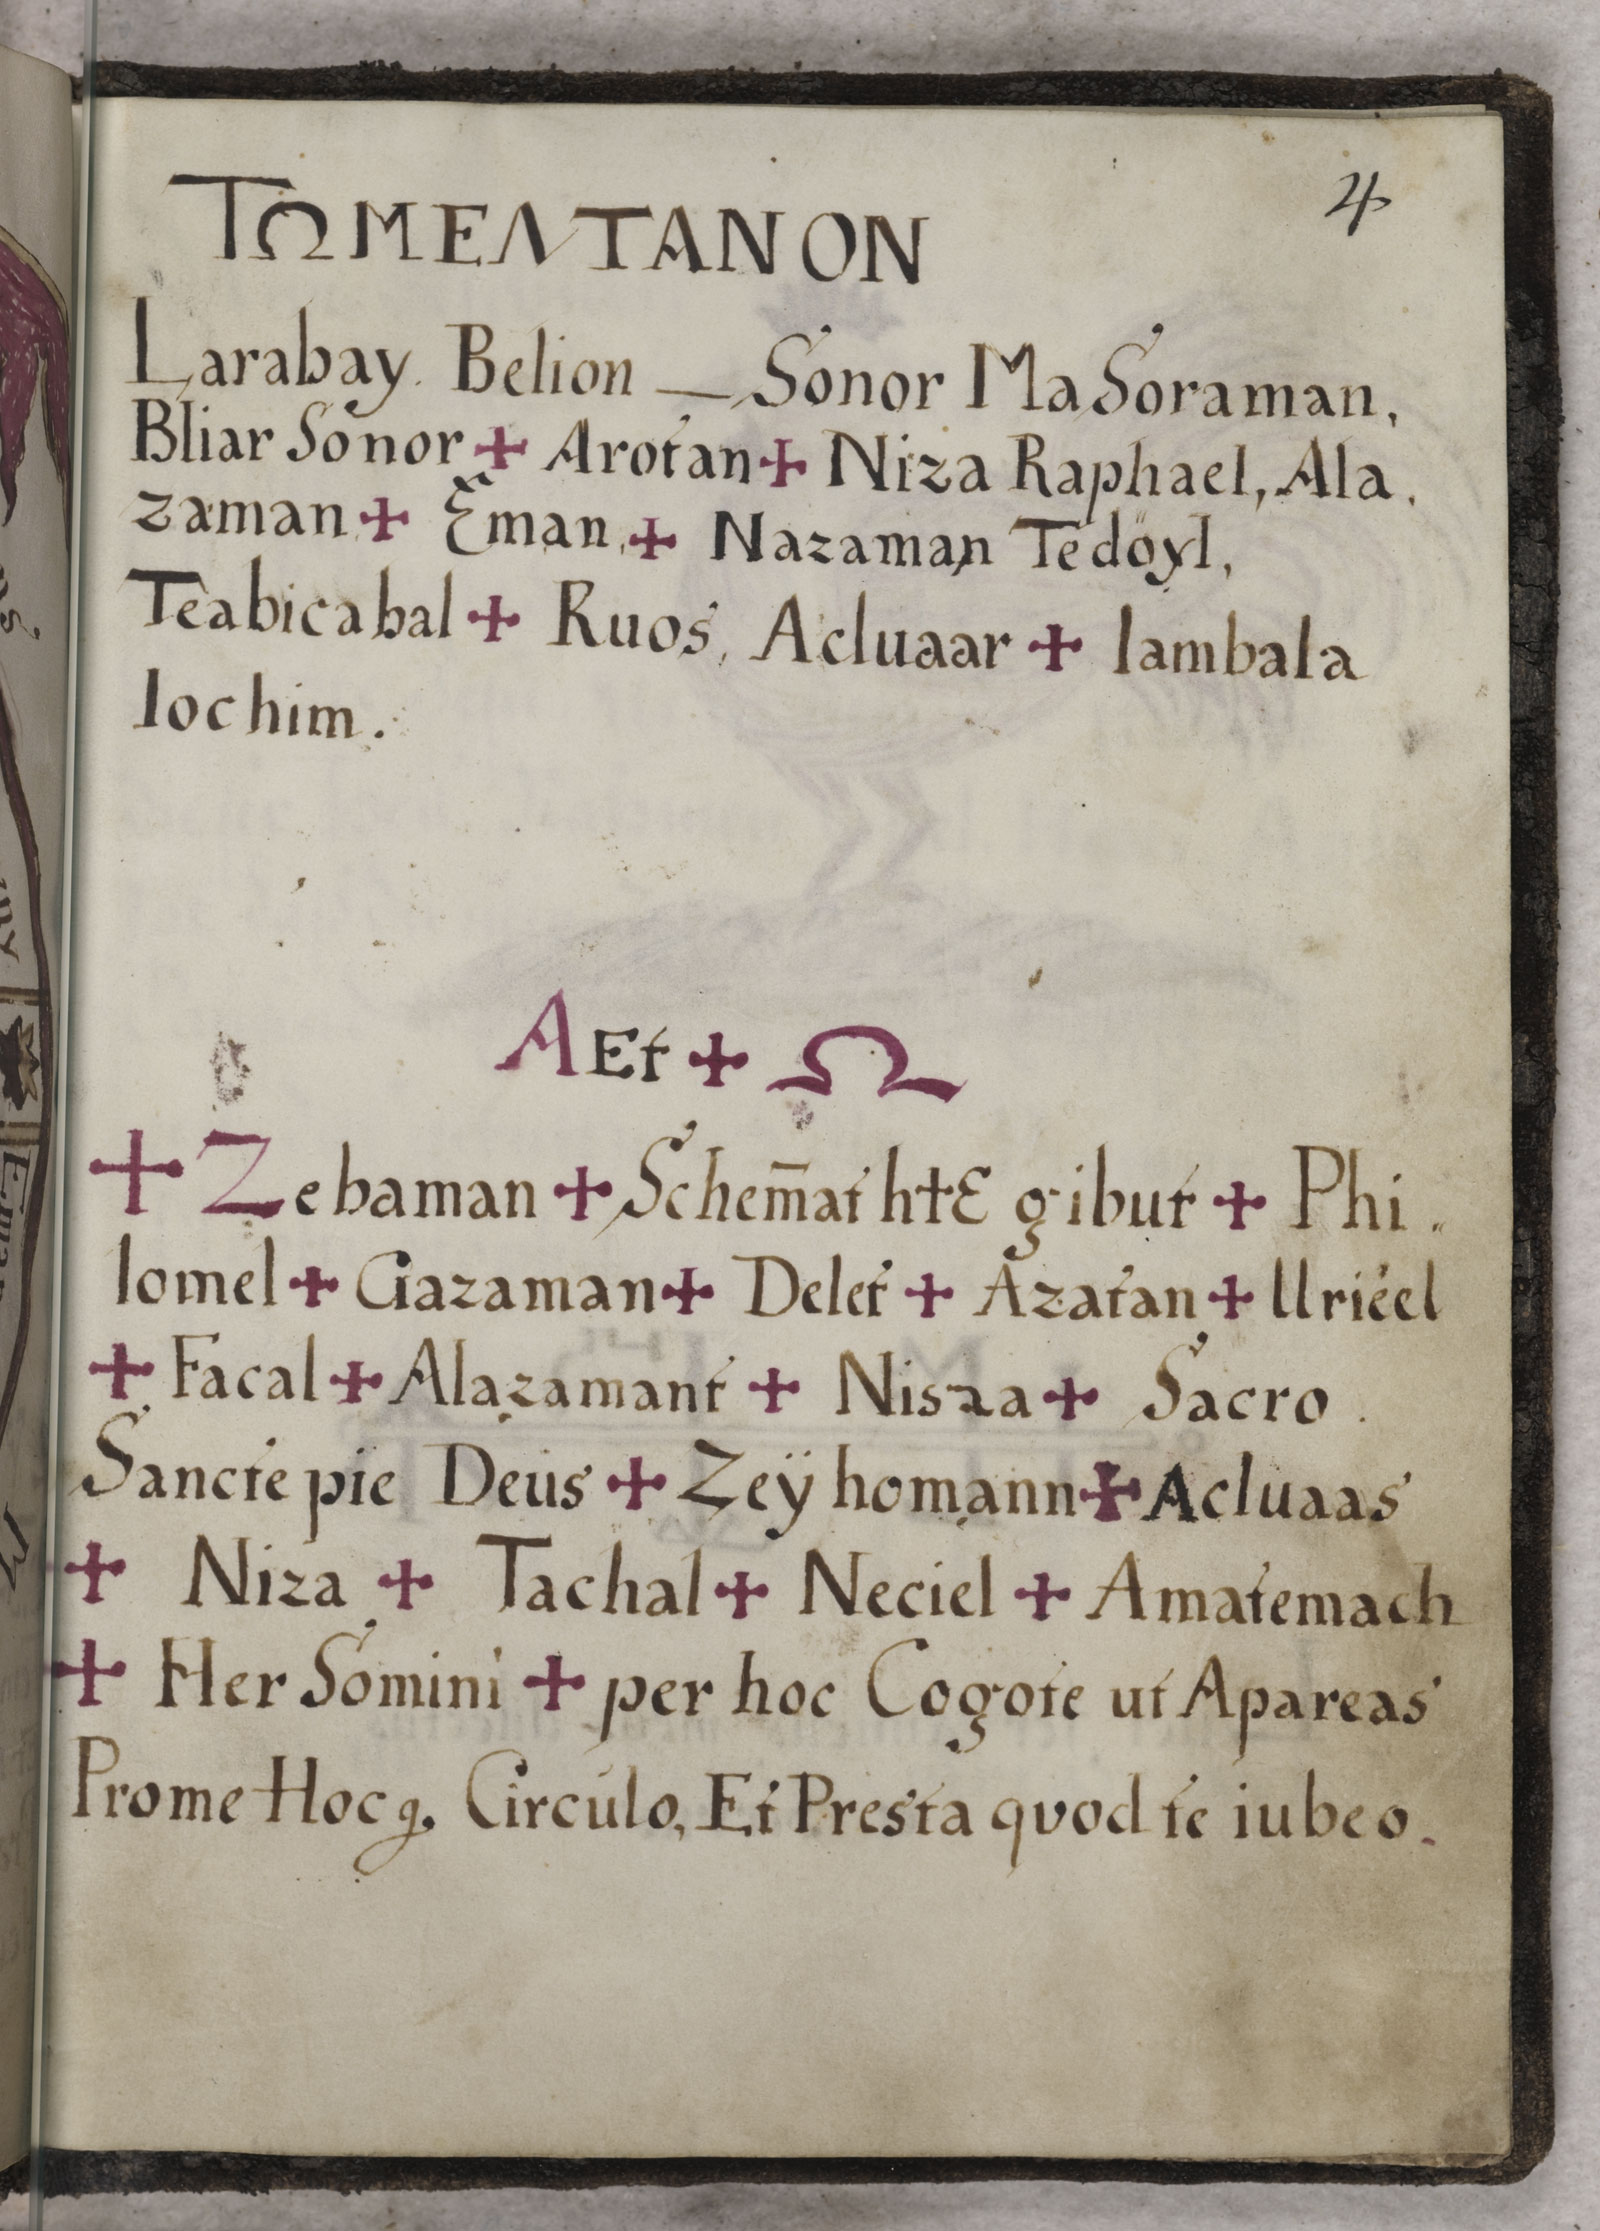 4
TΩMENTANON
Larabay. Belion — Sonor MaSoraman,
Bliar Sonor + Arotan + Niza Raphael, Ala.
zaman + Eman, + Nazaman Tedöyl,
Teabicabal + Ruos, Acluaar + Iambala
Iochim.
A Et + Ω
+ Zebaman + Schem̄at h+E gibut + Phi..
lomel + Gazaman + Delet + Azatan + Uriéel
+ Facal + Alazamant + Nisaa + Sacro.
Sancte pie Deus + Zeÿ homann + Acluaas
+ Niza + Tachal + Neciel + Amatemach
+ Her Somini + per hoc Cogote ut Apareas
Prome Hoc q. Circulo, Et Presta qvod te iubeo.